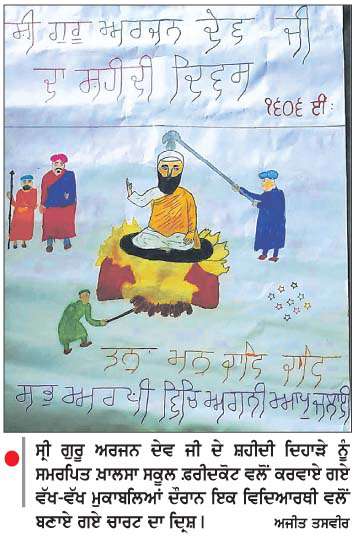 ਸ੍ਰੀ ਗੁਰੂ ਅਰਜਨ ਦੇਵ ਜੀ
ਦਾ ਸ਼ਹੀਦੀ ਦਿਵਸ
੧੬੦੬ ਈ:
ਤਨ ਮਨ ਕਾਟਿ ਕਾਟਿ
ਸਭੁ ਅਰਪੀ ਵਿਚਿ ਅਗਨੀ ਆਪੁ ਜਲਾਈ
ਸ੍ਰੀ ਗੁਰੂ ਅਰਜਨ ਦੇਵ ਜੀ ਦੇ ਸ਼ਹੀਦੀ ਦਿਹਾੜੇ ਨੂੰ
ਸਮਰਪਿਤ ਖ਼ਾਲਸਾ ਸਕੂਲ ਫ਼ਰੀਦਕੋਟ ਵਲੋਂ ਕਰਵਾਏ ਗਏ
ਵੱਖ-ਵੱਖ ਮੁਕਾਬਲਿਆਂ ਦੌਰਾਨ ਇਕ ਵਿਦਿਆਰਥੀ ਵਲੋਂ
ਬਣਾਏ ਗਏ ਚਾਰਟ ਦਾ ਦ੍ਰਿਸ਼। ਅਜੀਤ ਤਸਵੀਰ